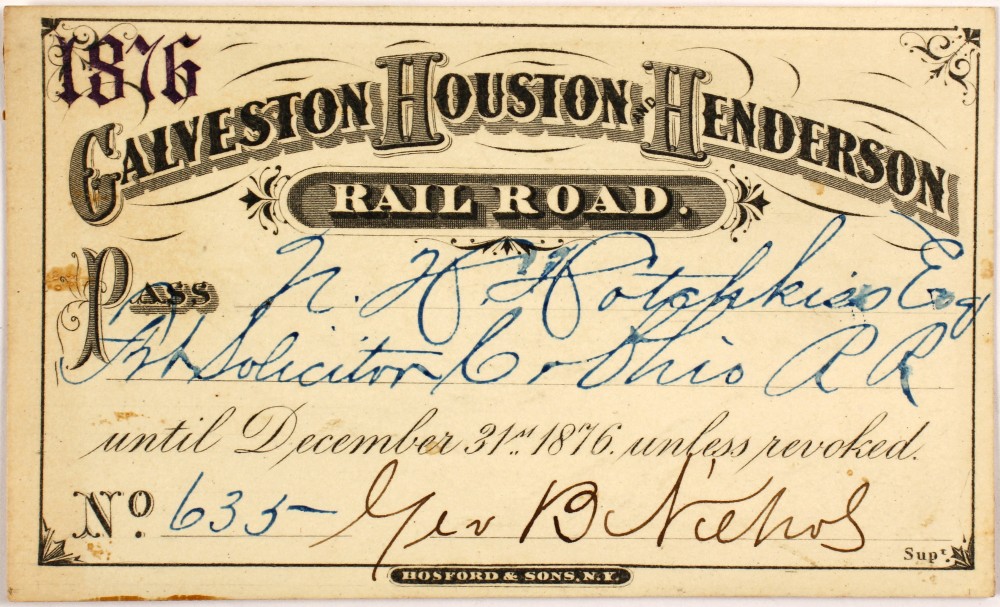 1876
GALVESTON HOUSTON AND HENDERSON
RAIL ROAD.
PASS N. W. Hotchkiss Esq
Frt Solicitor C & Ohio R R
until December 31st. 1876. unless revoked.
No. 635 Geo B Nichols
Supt.
HOSFORD & SONS. N.Y.